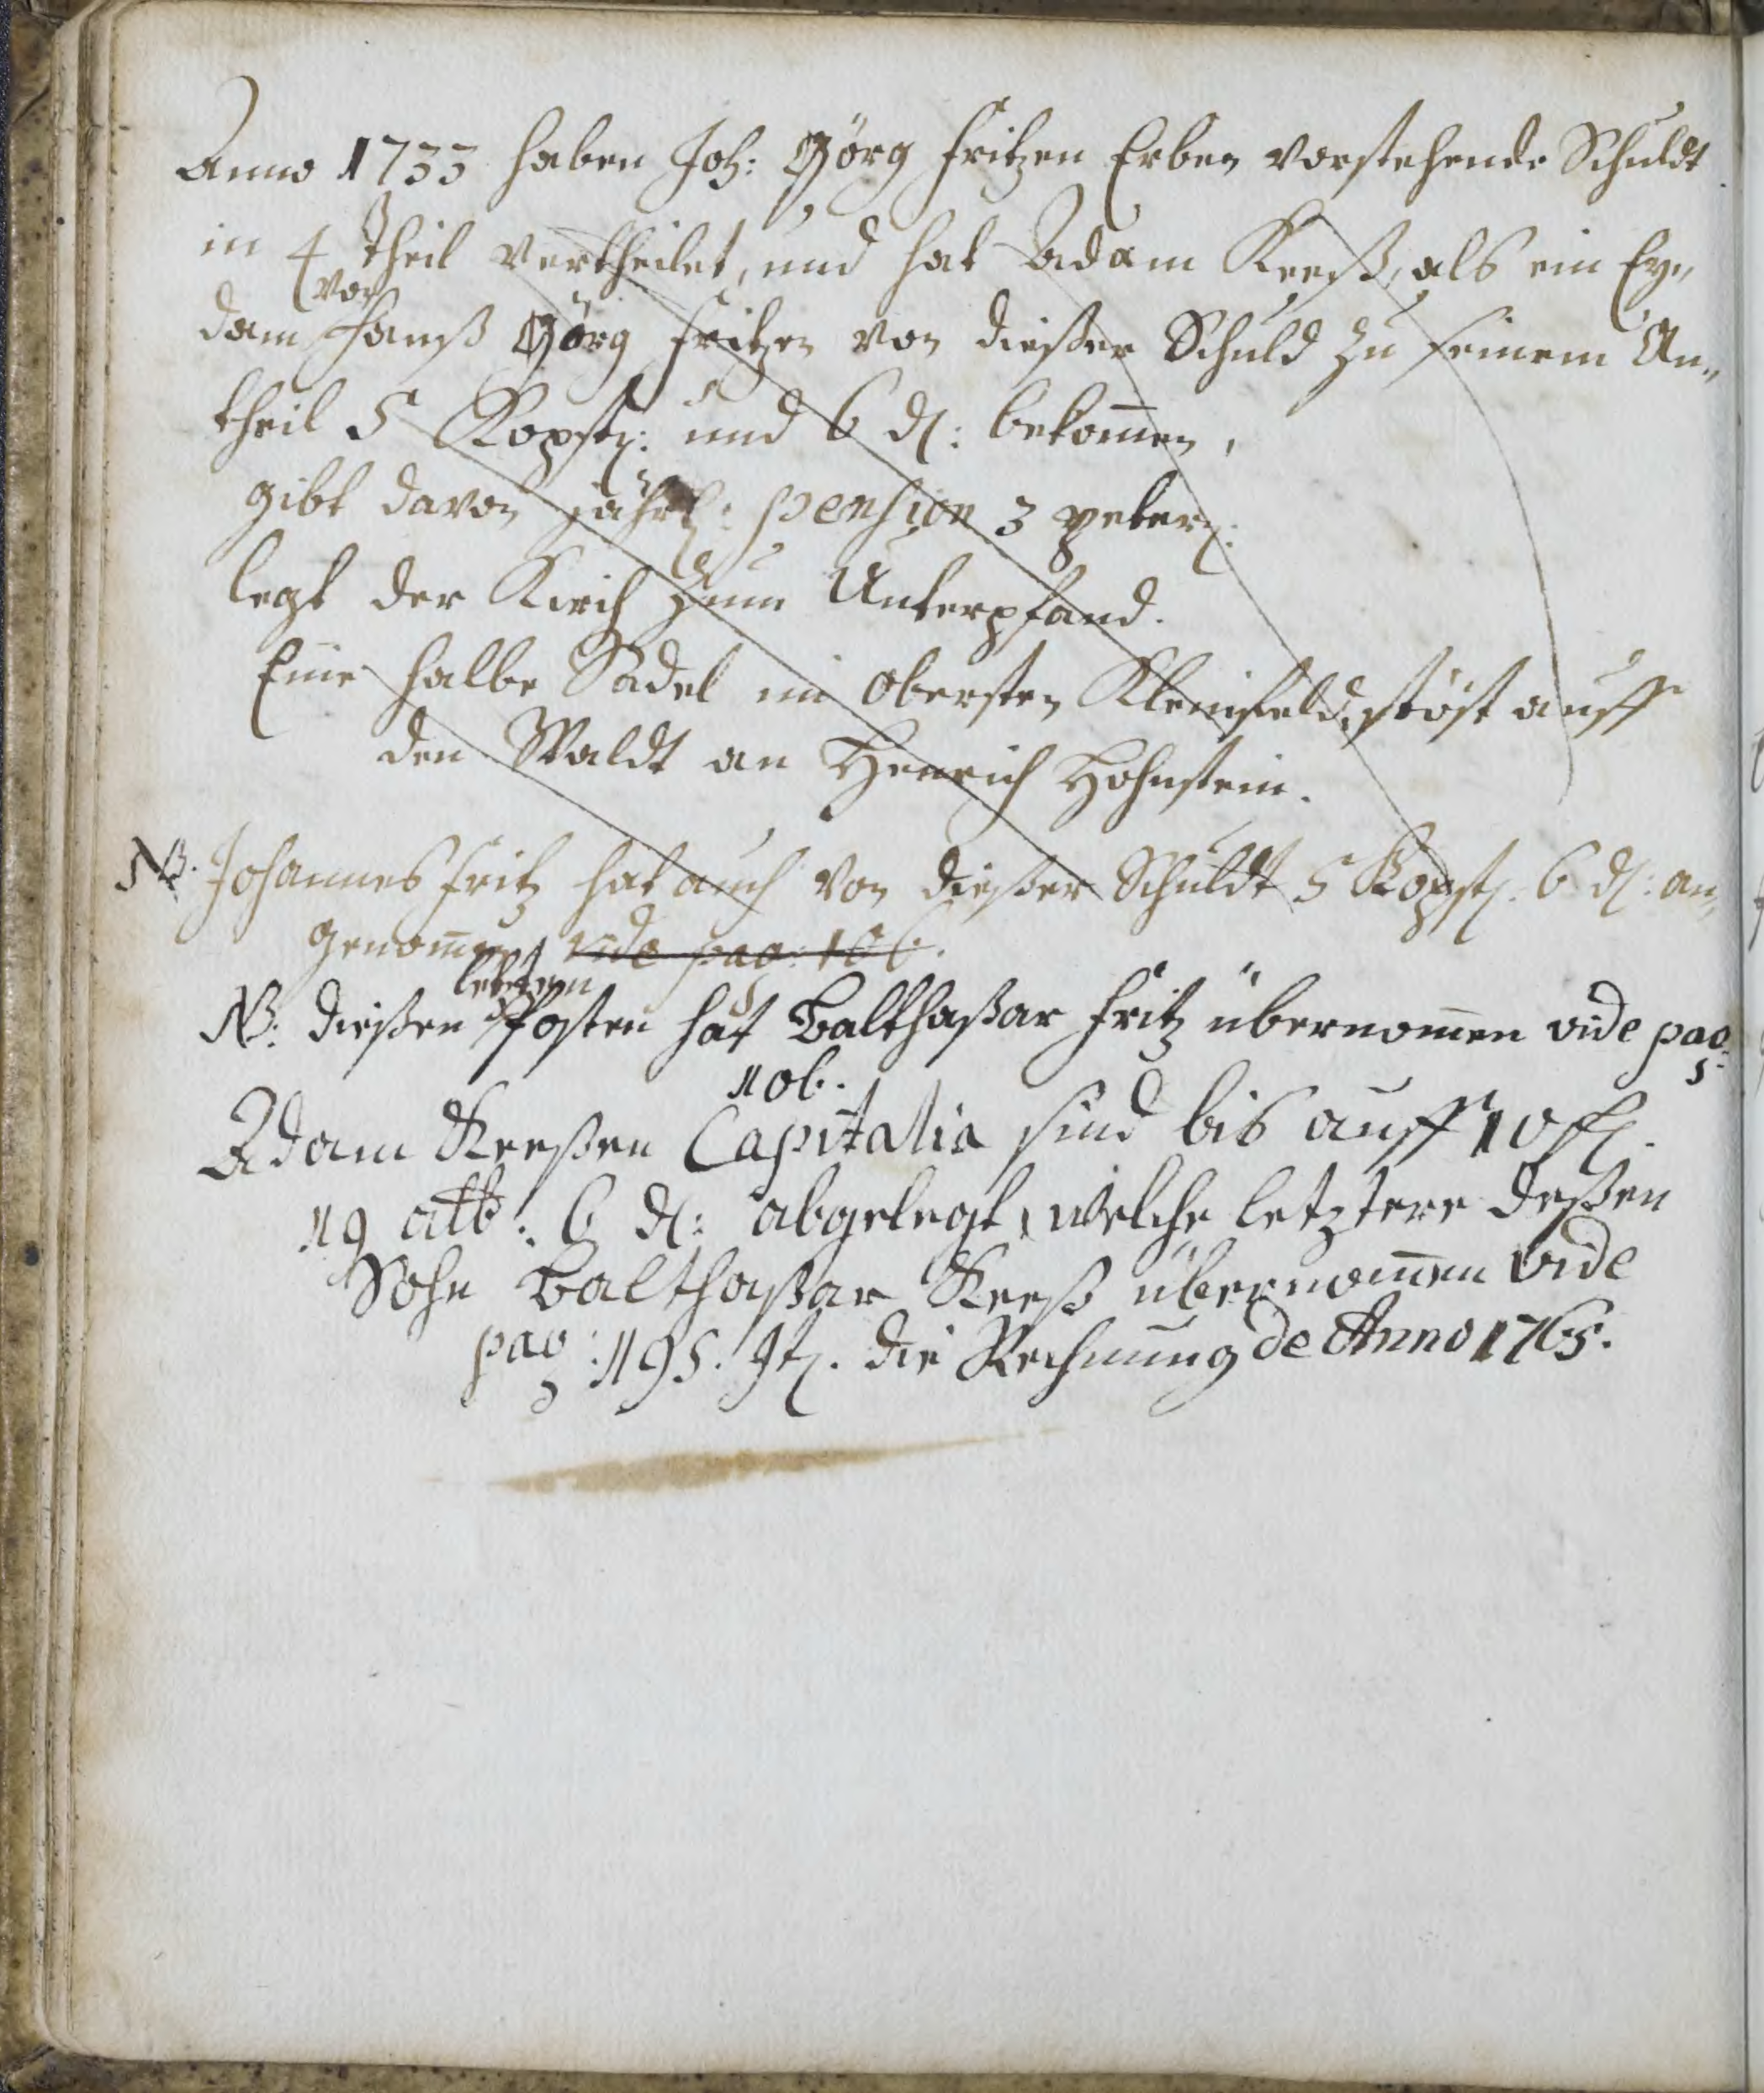 Anno 1733 haben Joh: Görg Fritzen Erben vorstehende Schuldt
in 4 Theil vertheilet, und hat Adam Kreß, als ein Ey„
dam von Hanß Görg Fritzen von dießer Schuld zu seinem An„
theil 5 Kopst: und 6 d: bekom̄en,
gibt davon jährl: pension 3 peterm:
legt der Kirch zum Unterpfand.
Eine halbe Sadel im obersten Kleinfeld, stöst auff
den Waldt an Henrich Hohnstein.
NB. Johannes Fritz hat auch von dießer Schuldt 5 Kopst: 6 d: an„
genom̄en vide pag: 106.
letztern
NB: dießen Posten hat Balthaßar Fritz übernom̄en vide pag:
106.
Adam Kreßen Capitalia sind bis auff 10 fl.
19 alb: 6 d: abgelegt, welche letztere deßen
Sohn Balthaßar Kreß übernom̄en vide
pag: 195. It. die Rechnung de Anno 1765.